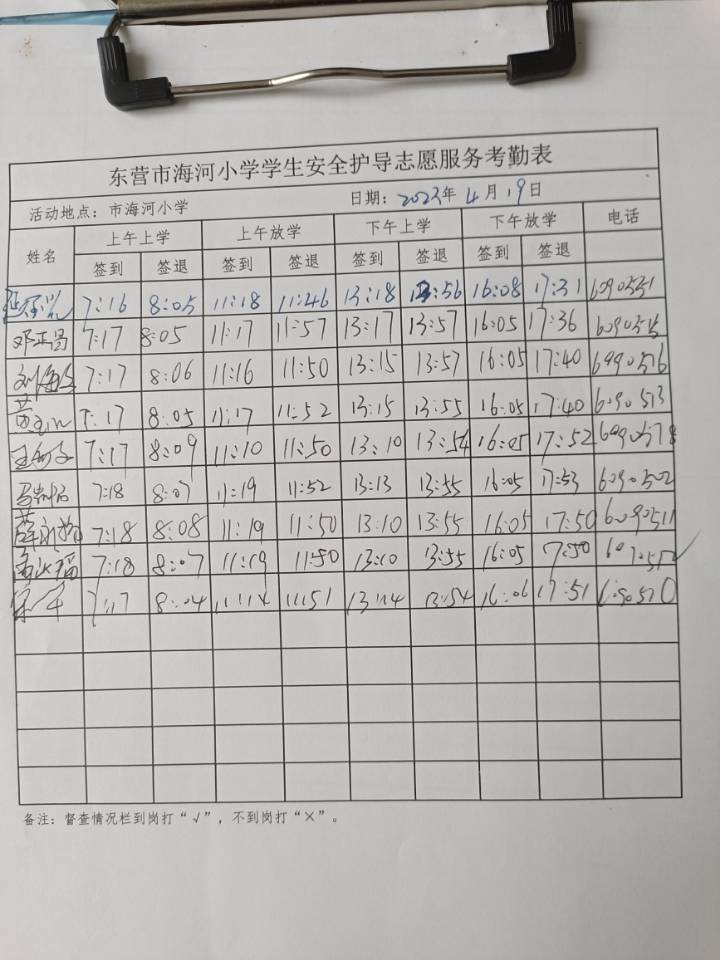 东营市海河小学学生安全护导志愿服务考勤表
活动地点：市海河小学 日期：2023年 4月19日
姓名 上午上学 上午放学 下午上学 下午放学 电话
签到 签退 签到 签退 签到 签退 签到 签退
7:16 8:05 11:18 11:46 13:18 13:56 16:08 17:31 6090551
邓正昌 7:17 8:05 11:17 11:57 13:17 13:57 16:05 17:36
7:17 8:06 11:16 11:50 13:15 13:57 16:05 17:40 6090516
7:17 8:05 11:17 11:52 13:15 13:55 16:05 17:40 6090513
7:17 8:09 11:10 11:50 13:10 13:54 16:05 17:52
7:18 8:07 11:19 11:52 13:13 13:55 16:05 17:53 6090502
7:18 8:08 11:19 11:50 13:10 13:55 16:05 17:50 6090511
7:18 8:07 11:19 11:50 13:10 13:55 16:05 7:50
7:17 8:04 11:14 11:51 13:14 13:54 16:06 17:51
备注：督查情况栏到岗打“√”，不到岗打“×”。